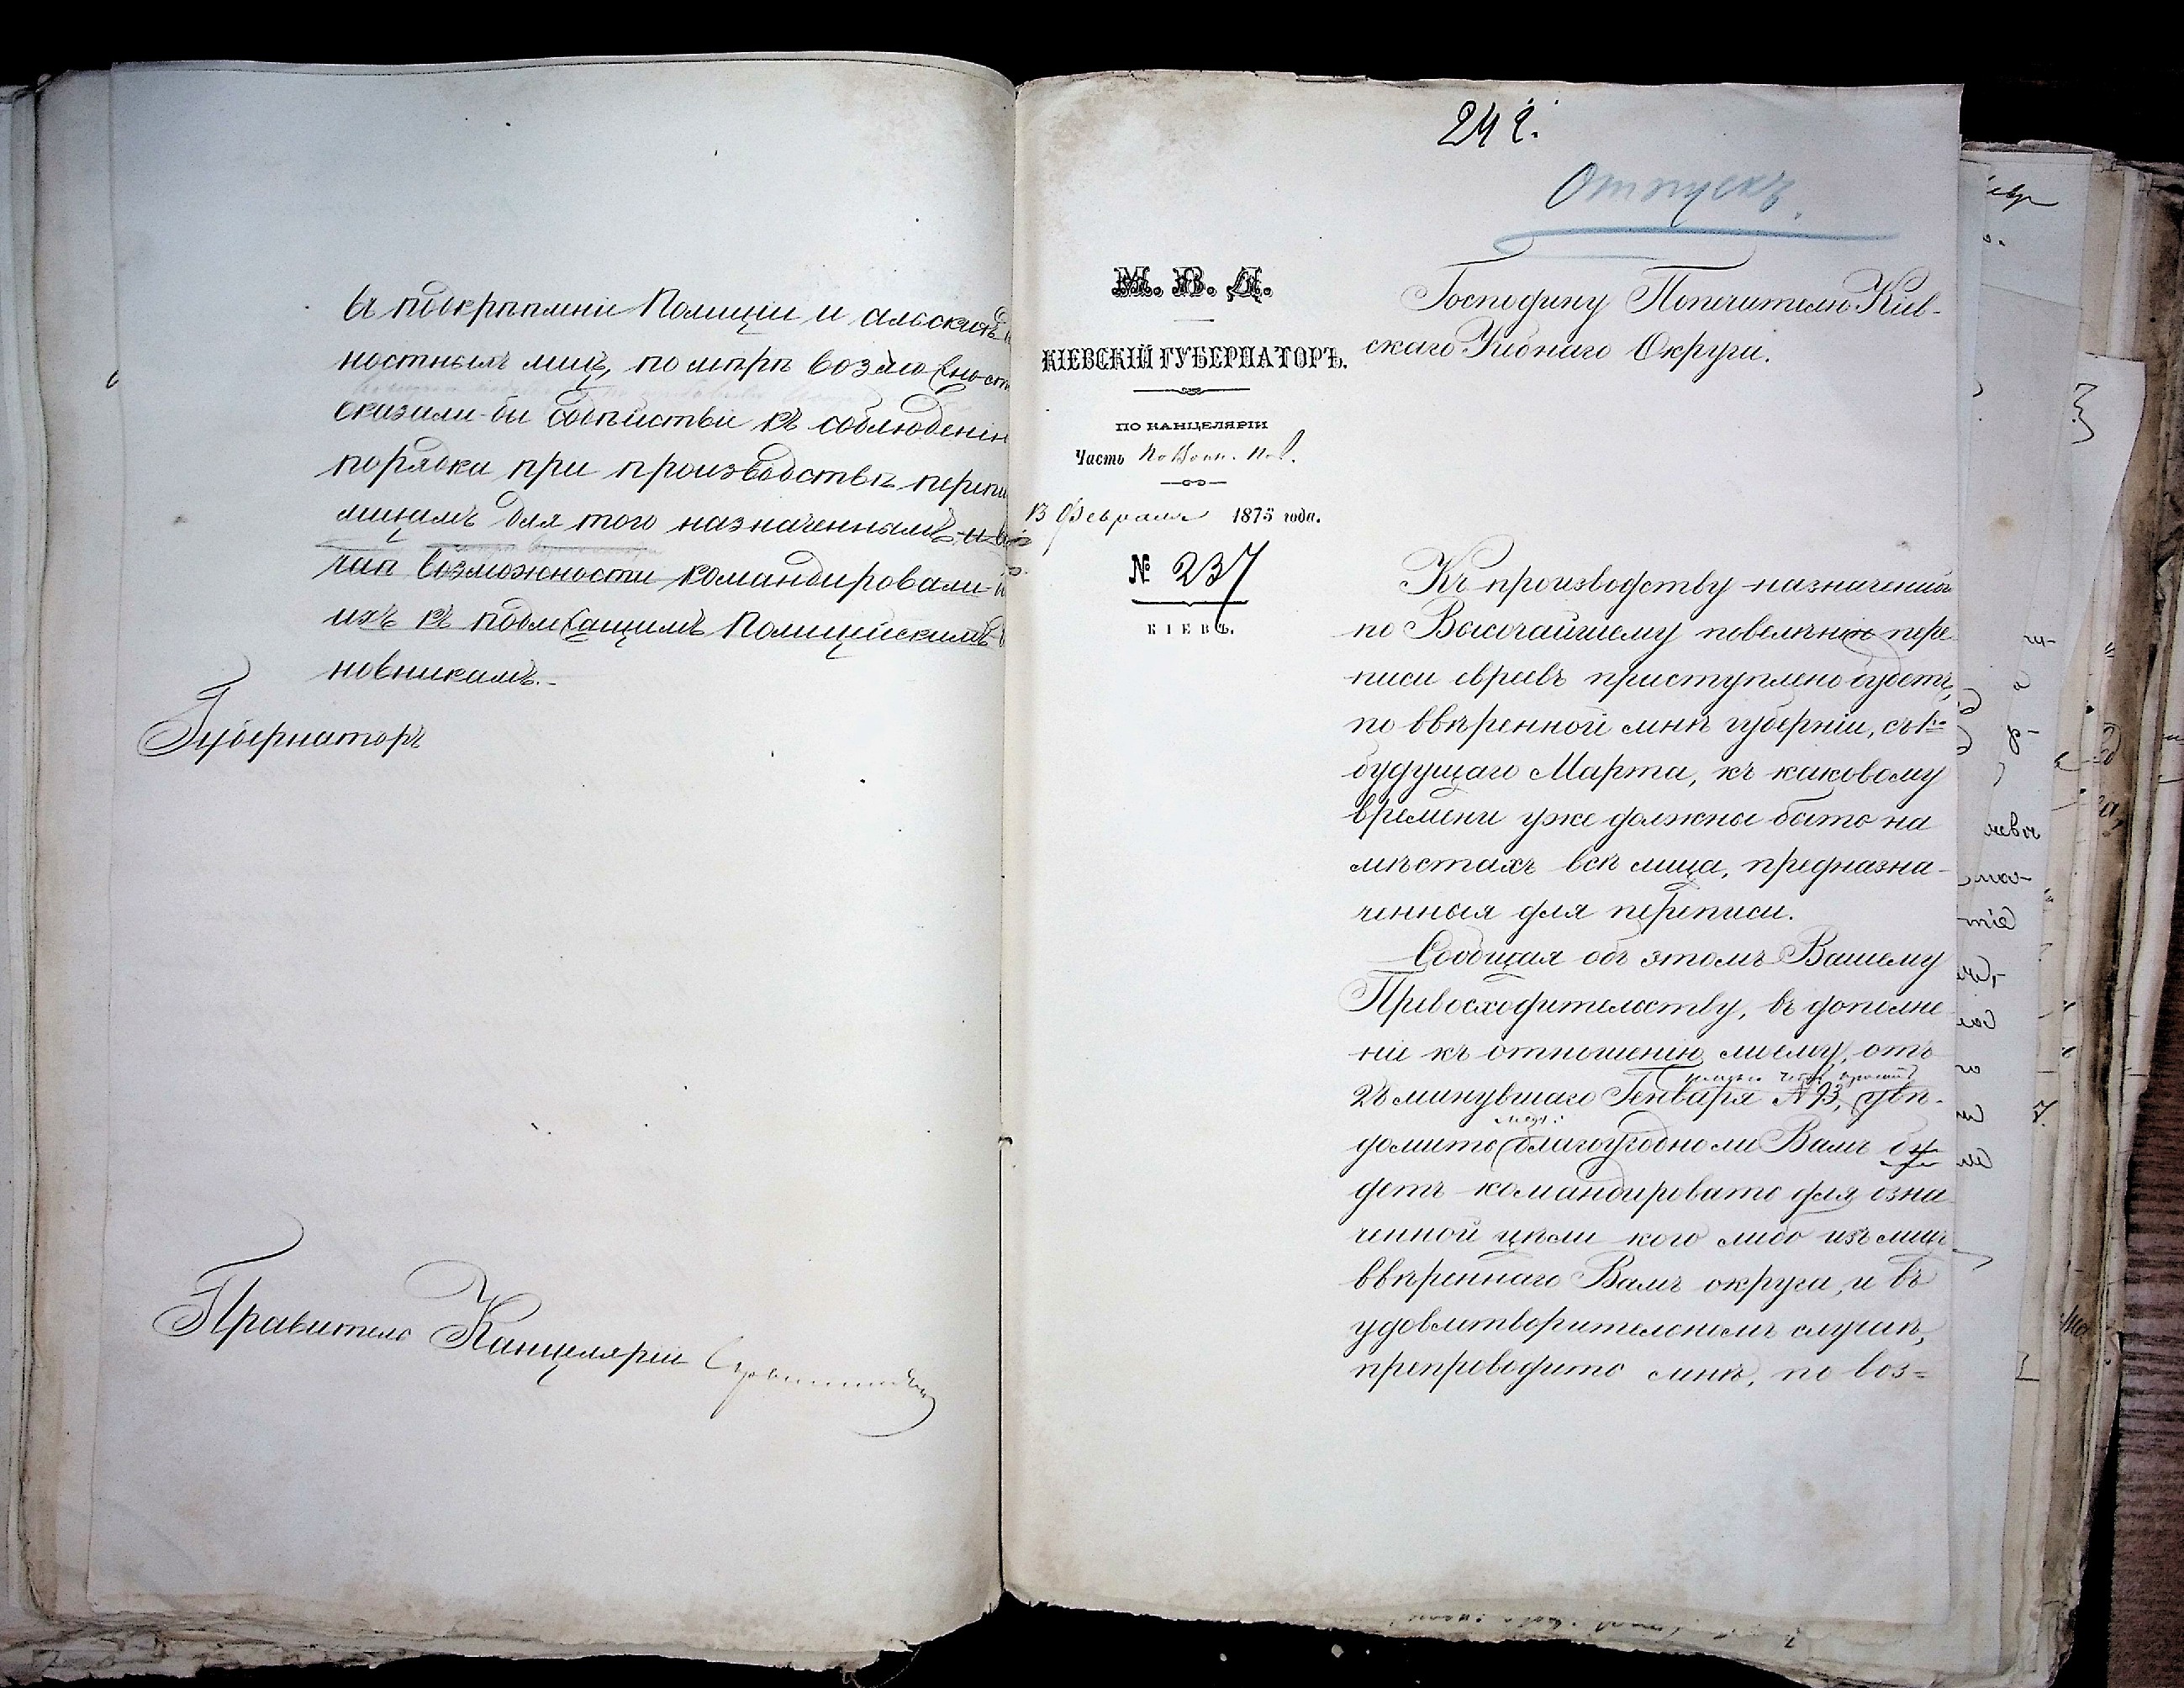 въ подкрѣпленіе Полиціи и сельскихъ
ностныхъ лицъ, по мѣрѣ возможности
оказали-бы содѣйствіе къ соблюденію
порядка при производствѣ перепи
лицамъ для того назначеннымъ
возможности командировали-
ихъ къ подлежащимъ Полицейскимъ
новникамъ.
Губернаторъ
Правитель Канцеляріи
242.
Отпускъ.
М. В. Д.
КІЕВСКІЙ ГУБЕРНАТОРЪ.
ПО КАНЦЕЛЯРІИ
Часть По Воин. п.
13 Февраля 1875 года.
№ 237
КІЕВЪ.
Господину Попечителю Кіев-
скаго Учебнаго Округа.
Къ производству назначенной
по Высочайшему повелѣнію пере
писи евреевъ приступлено будетъ,
по ввѣренной мнѣ губерніи, съ 1го
будущаго Марта, къ каковому
времени уже должны быть на
мѣстахъ всѣ лица, предназна-
ченныя для переписи.
Сообщая объ этомъ Вашему
Превосходительству, въ дополне
ніе къ отношенію моему, отъ
минувшаго Генваря № 93, увѣ-
домить благоугодно ли Вамъ бу
детъ командировать для озна
ченной цѣли кого либо изъ лицъ
ввѣреннаго Вамъ округа, и въ
удовлетворительномъ случаѣ,
препроводить мнѣ, по воз=